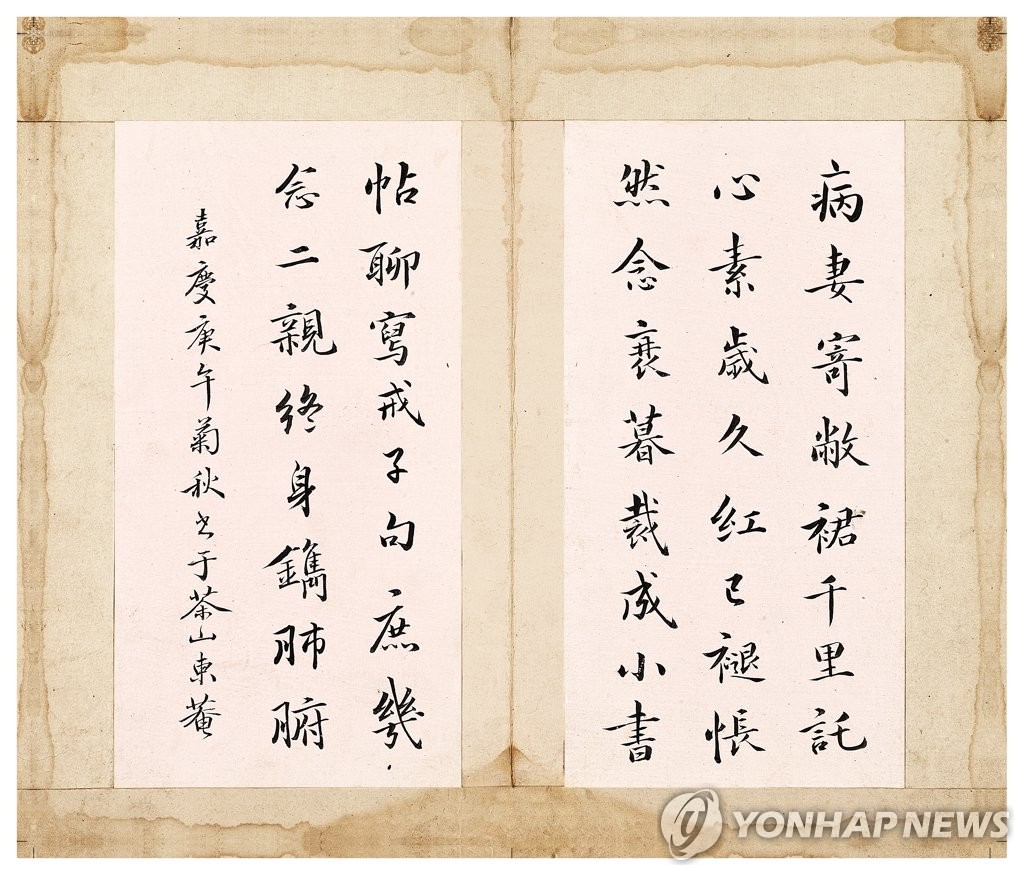 病妻寄敝裙千里託
心素歲久紅已褪悵
然念衰暮裁成小書
帖聊寫戒子句庶幾
念二親終身鐫肺腑
嘉慶庚午菊秋書于茶山東菴
YONHAP NEWS